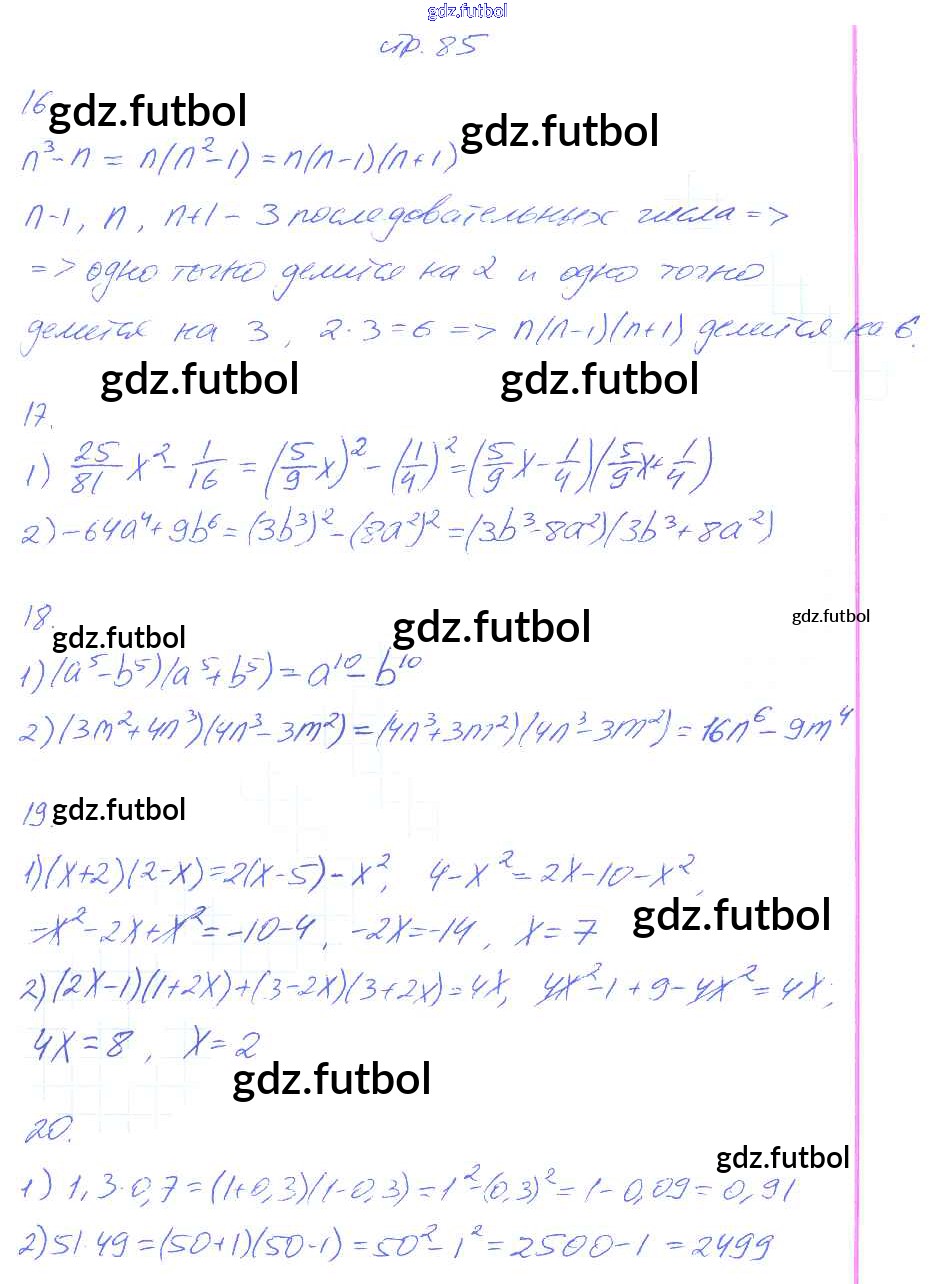 gdz.futbol
стр. 85
16 gdz.futbol gdz.futbol
n³-n = n(n²-1) = n(n-1)(n+1)
n-1, n, n+1 - 3 последовательных числа =>
=> одно точно делится на 2 и одно точно
делится на 3, 2·3=6 => n(n-1)(n+1) делится на 6.
gdz.futbol gdz.futbol
17.
1) 25/81 x² - 1/16 = (5/9 x)² - (1/4)² = (5/9 x - 1/4)(5/9 x + 1/4)
2) -64a⁴ + 9b⁶ = (3b³)² - (8a²)² = (3b³-8a²)(3b³+8a²)
18. gdz.futbol gdz.futbol gdz.futbol
1) (a⁵-b⁵)(a⁵+b⁵) = a¹⁰ - b¹⁰
2) (3m²+4n³)(4n³-3m²) = (4n³+3m²)(4n³-3m²) = 16n⁶ - 9m⁴
19. gdz.futbol
1) (x+2)(2-x) = 2(x-5) - x², 4-x² = 2x-10-x²,
-x²-2x+x² = -10-4, -2x=-14, x=7 gdz.futbol
2) (2x-1)(1+2x)+(3-2x)(3+2x)=4x, 4x²-1+9-4x²=4x;
4x=8, x=2
gdz.futbol
20.
gdz.futbol
1) 1,3·0,7 = (1+0,3)(1-0,3) = 1²-(0,3)² = 1-0,09 = 0,91
2) 51·49 = (50+1)(50-1) = 50²-1² = 2500-1 = 2499